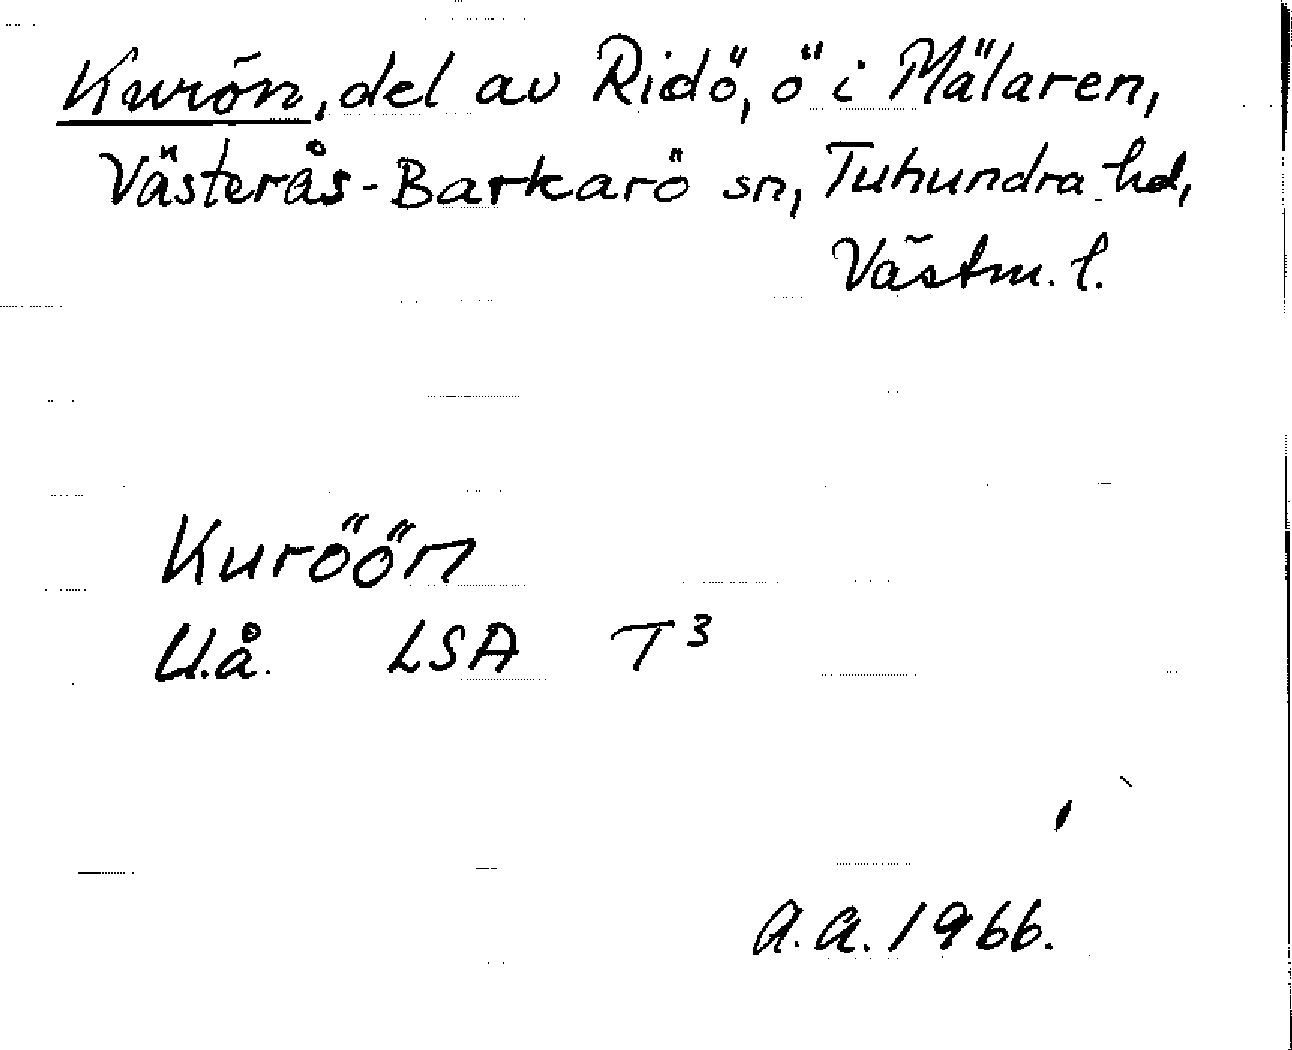 Kurön, del av Ridö, ö i Mälaren,
Västerås-Barkarö sn, Tuhundra hd,
Västm. l.
Kuröön
U.å. LSA T³
A.A. 1966.